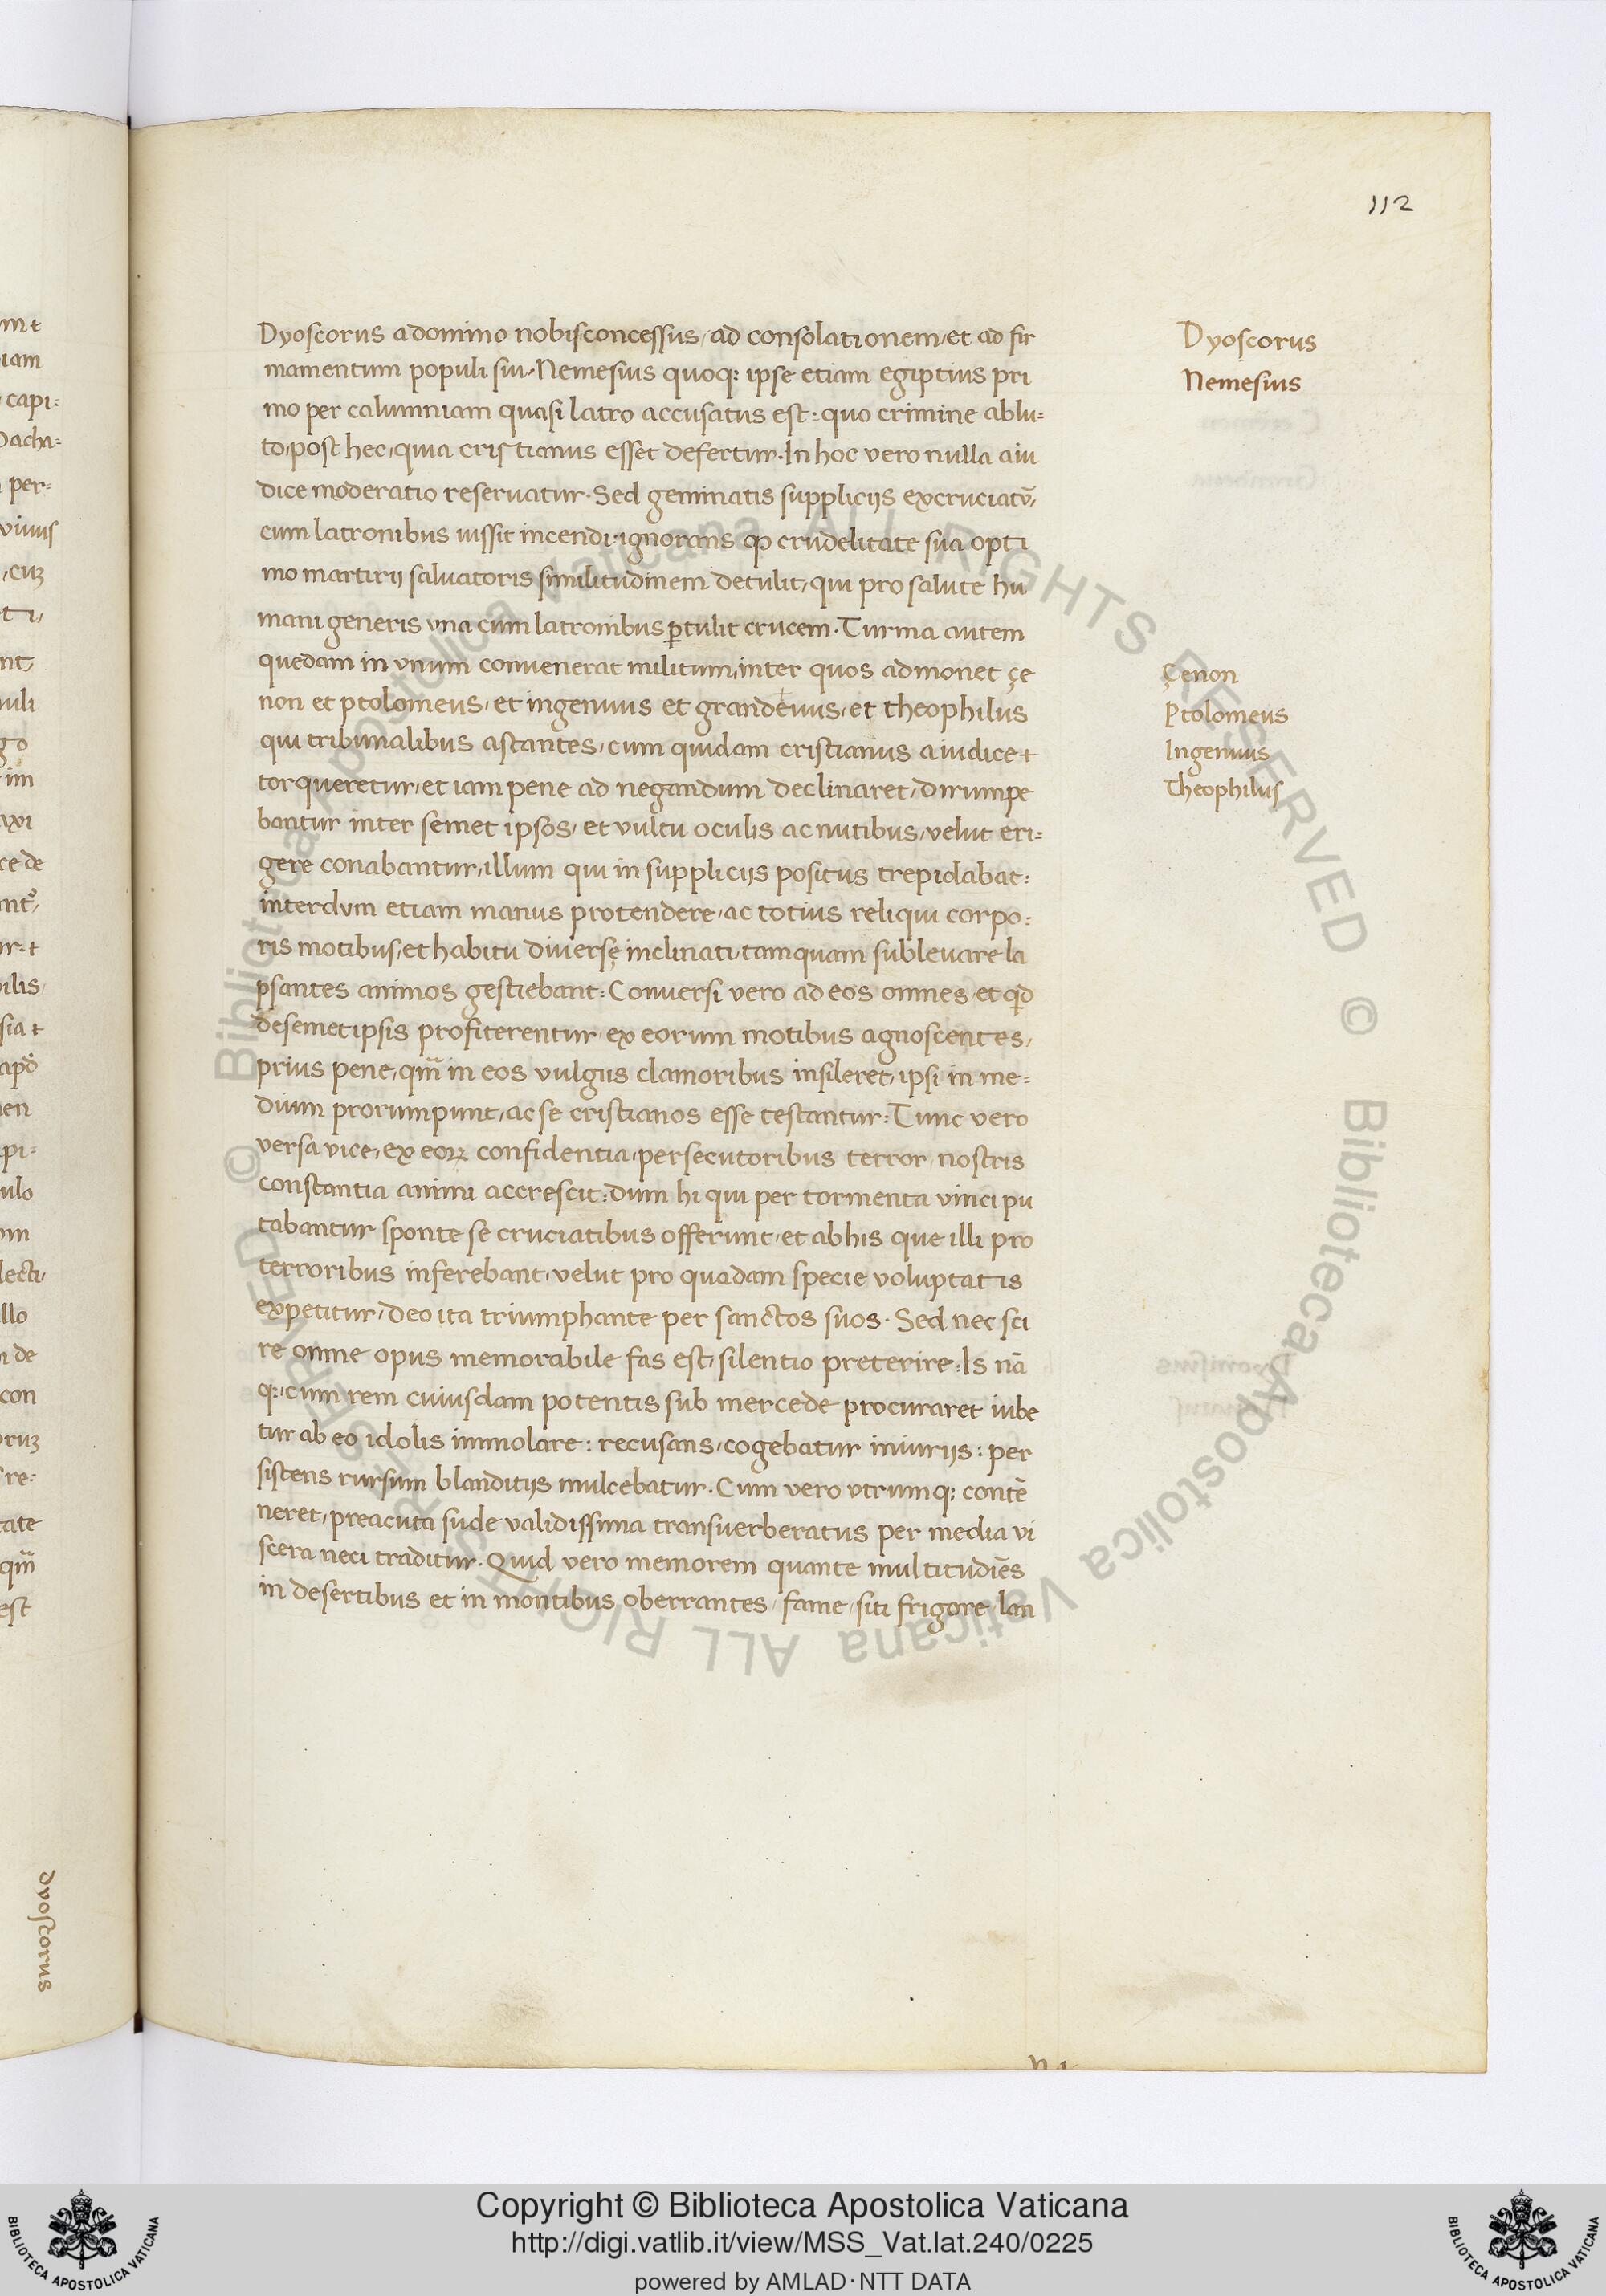 112
Dyoscorus a domino nobis concessus, ad consolationem, et ad fir
mamentum populi sui. Nemesius quoq: ipse etiam egiptius pri
mo per calumniam quasi latro accusatus est: quo crimine ablu=
to, post hec, quia cristianus esset defertur. In hoc vero nulla a iu
dice moderatio reseruatur. Sed geminatis suppliciis excruciatū,
cum latronibus iussit incendi. ignorans ꝙ crudelitate sua opti
mo martirij saluatoris similitudinem detulit, qui pro salute hu
mani generis vna cum latronibus ꝑtulit crucem. Turma autem
quedam in vnum convenerat militum, inter quos admonet çe
non et ptolomeus, et ingenuus et grandeuus, et theophilus
qui tribunalibus astantes, cum quidam cristianus a iudice
torqueretur, et iam pene ad negandum declinaret, dirumpe
bantur inter semet ipsos, et vultu oculis ac nutibus, velut eri=
gere conabantur, illum qui in suppliciis positus trepidabat:
interdum etiam manus protendere, ac totius reliqui corpo:
ris motibus, et habitu diuersę inclinati, tamquam subleuare la
psantes animos gestiebant: Conuersi vero ad eos omnes et qđ
de semetipsis profiterentur ex eorum motibus agnoscentes,
prius pene, qm̄ in eos vulgus clamoribus insileret, ipsi in me=
dium prorumpunt, ac se cristianos esse testantur: Tunc vero
versa vice, ex eoꝝ confidentia, persecutoribus terror nostris
constantia animi accrescit: dum hi qui per tormenta vinci pu
tabantur sponte se cruciatibus offerunt, et ab his que illi pro
terroribus inferebant, velut pro quadam specie voluptatis
expetitur, deo ita triumphante per sanctos suos. Sed nec sci
re omne opus memorabile fas est, silentio preterire. Is nā
q:, cum rem cuiusdam potentis sub mercede procuraret iube
tur ab eo idolis immolare: recusans, cogebatur iniuriis: per
sistens rursum blanditiis mulcebatur. Cum vero vtrumq: contē
neret, preacuta sude validissima transuerberatus per media vi
scera neci traditur. Quid vero memorem quante multitudiēs
in desertibus et in montibus oberrantes, fame, siti frigore, lan
Dyoscorus
Nemesius
Çenon
Ptolomeus
Ingenuus
Theophilus
dyoscorus
Copyright © Biblioteca Apostolica Vaticana
http://digi.vatlib.it/view/MSS_Vat.lat.240/0225
powered by AMLAD·NTT DATA
BIBLIOTECA APOSTOLICA VATICANA
BIBLIOTECA APOSTOLICA VATICANA
© Biblioteca Apostolica Vaticana ALL RIGHTS RESERVED © Biblioteca Apostolica Vaticana ALL RIGHTS RESERVED